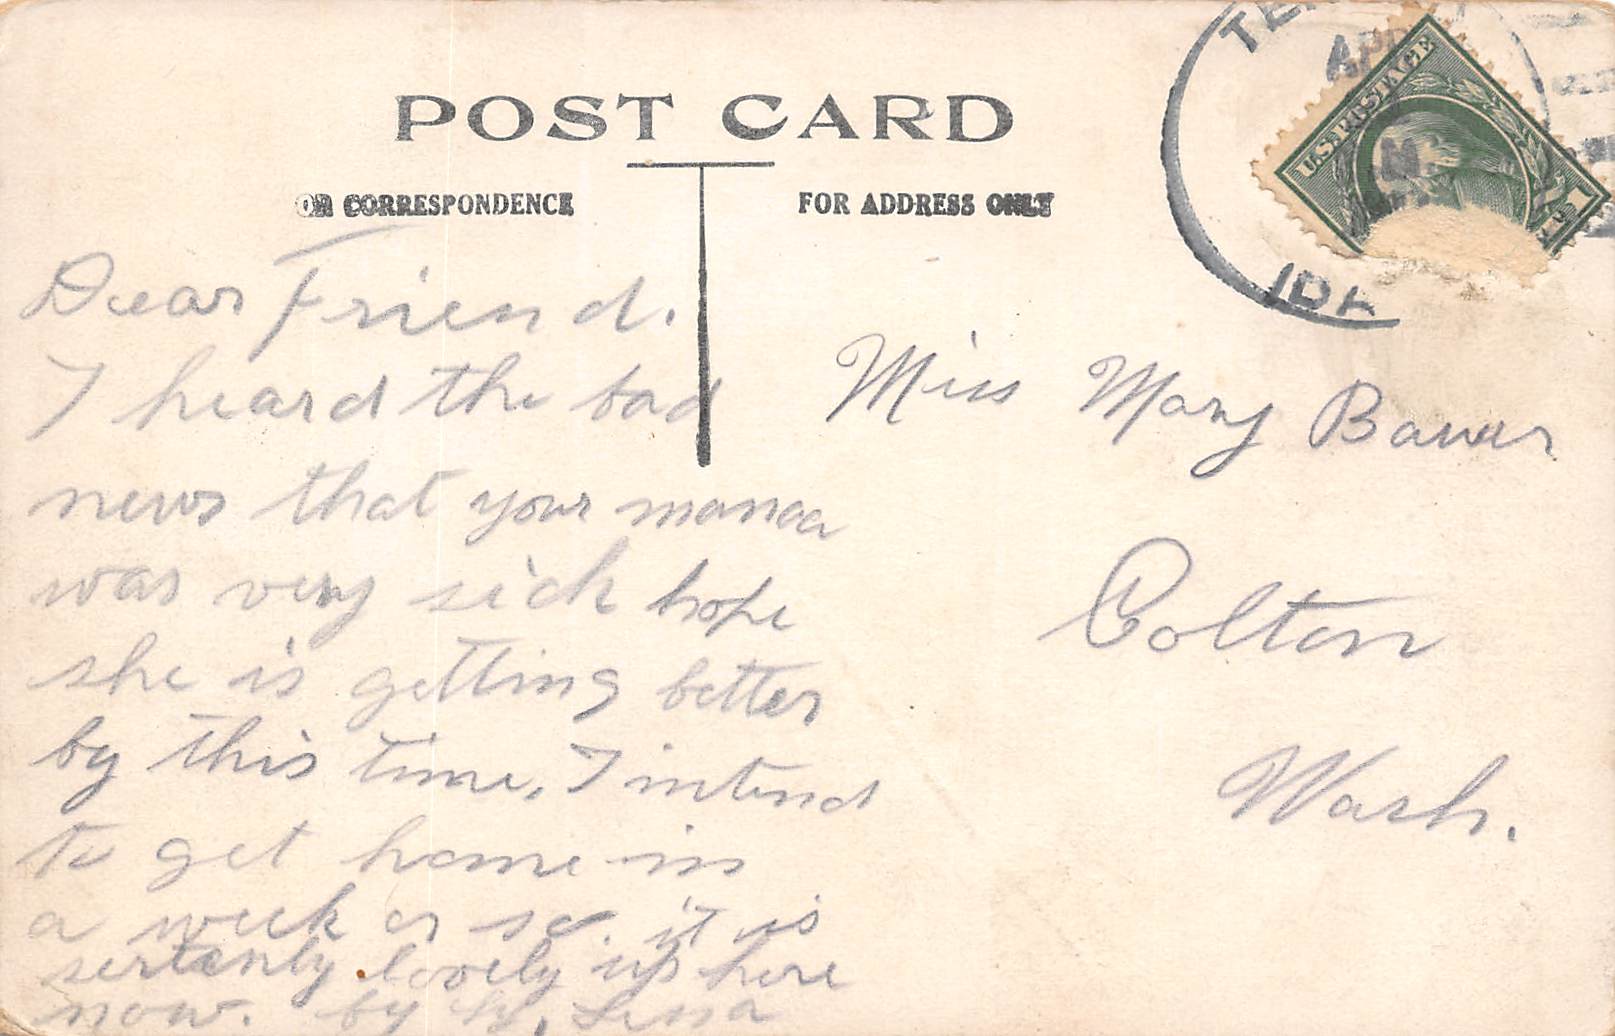 POST CARD
OR CORRESPONDENCE
FOR ADDRESS ONLY
APR
U.S. POSTAGE
1
M
IDA
Dear Friend.
I heard the bad
news that your manaa
was very sick hope
she is getting better
by this time, I intend
to get home in
a week or so. it is
sertanly lovely up here
now. by
Miss Mary Bauer
Colton
Wash.